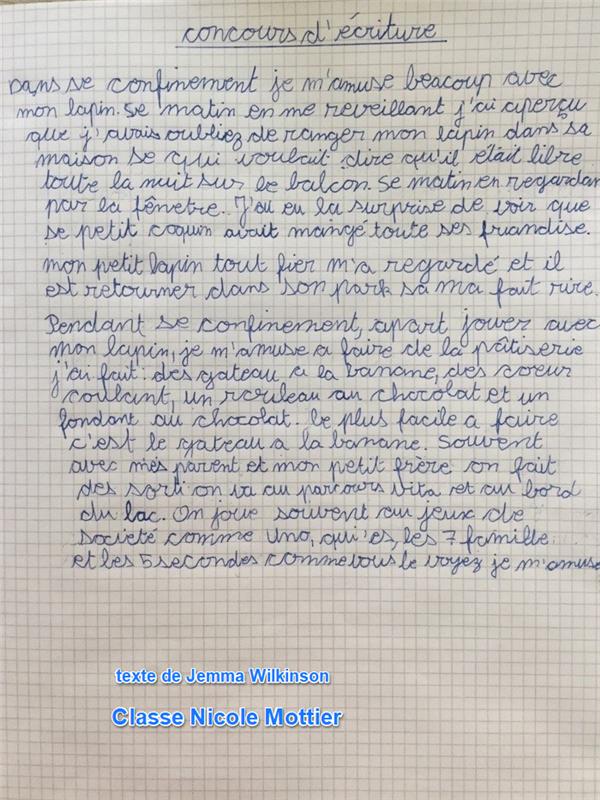 concours d'écriture
Dans se confinement je m'amuse beacoup avec
mon lapin. Se matin en me reveillant j'ai aperçu
que j'avais oubliez de ranger mon lapin dans sa
maison se qui voulait dire qu'il était libre
toute la nuit sur le balcon. Se matin en regardan
par la fênetre. J'ai eu la surprise de voir que
se petit coquin avait mangé toute ses friandise.
mon petit lapin tout fier m'a regardé et il
est retourner dans son park sa ma fait rire.
Pendant se confinement, apart jouer avec
mon lapin, je m'amuse a faire de la pâtiserie
j'ai fait: des gateau a la banane, des coeur
coulant, un rouleau au chocolat et un
fondant au chocolat. le plus facile a faire
c'est le gateau a la banane. Souvent
avec mes parent et mon petit frère on fait
des sorti on va au parcours vita et au bord
du lac. On joue souvent au jeux de
societé comme Uno, qui'es, les 7 famille
et les 5 secondes comme vous le voyez je m'amuse
texte de Jemma Wilkinson
Classe Nicole Mottier